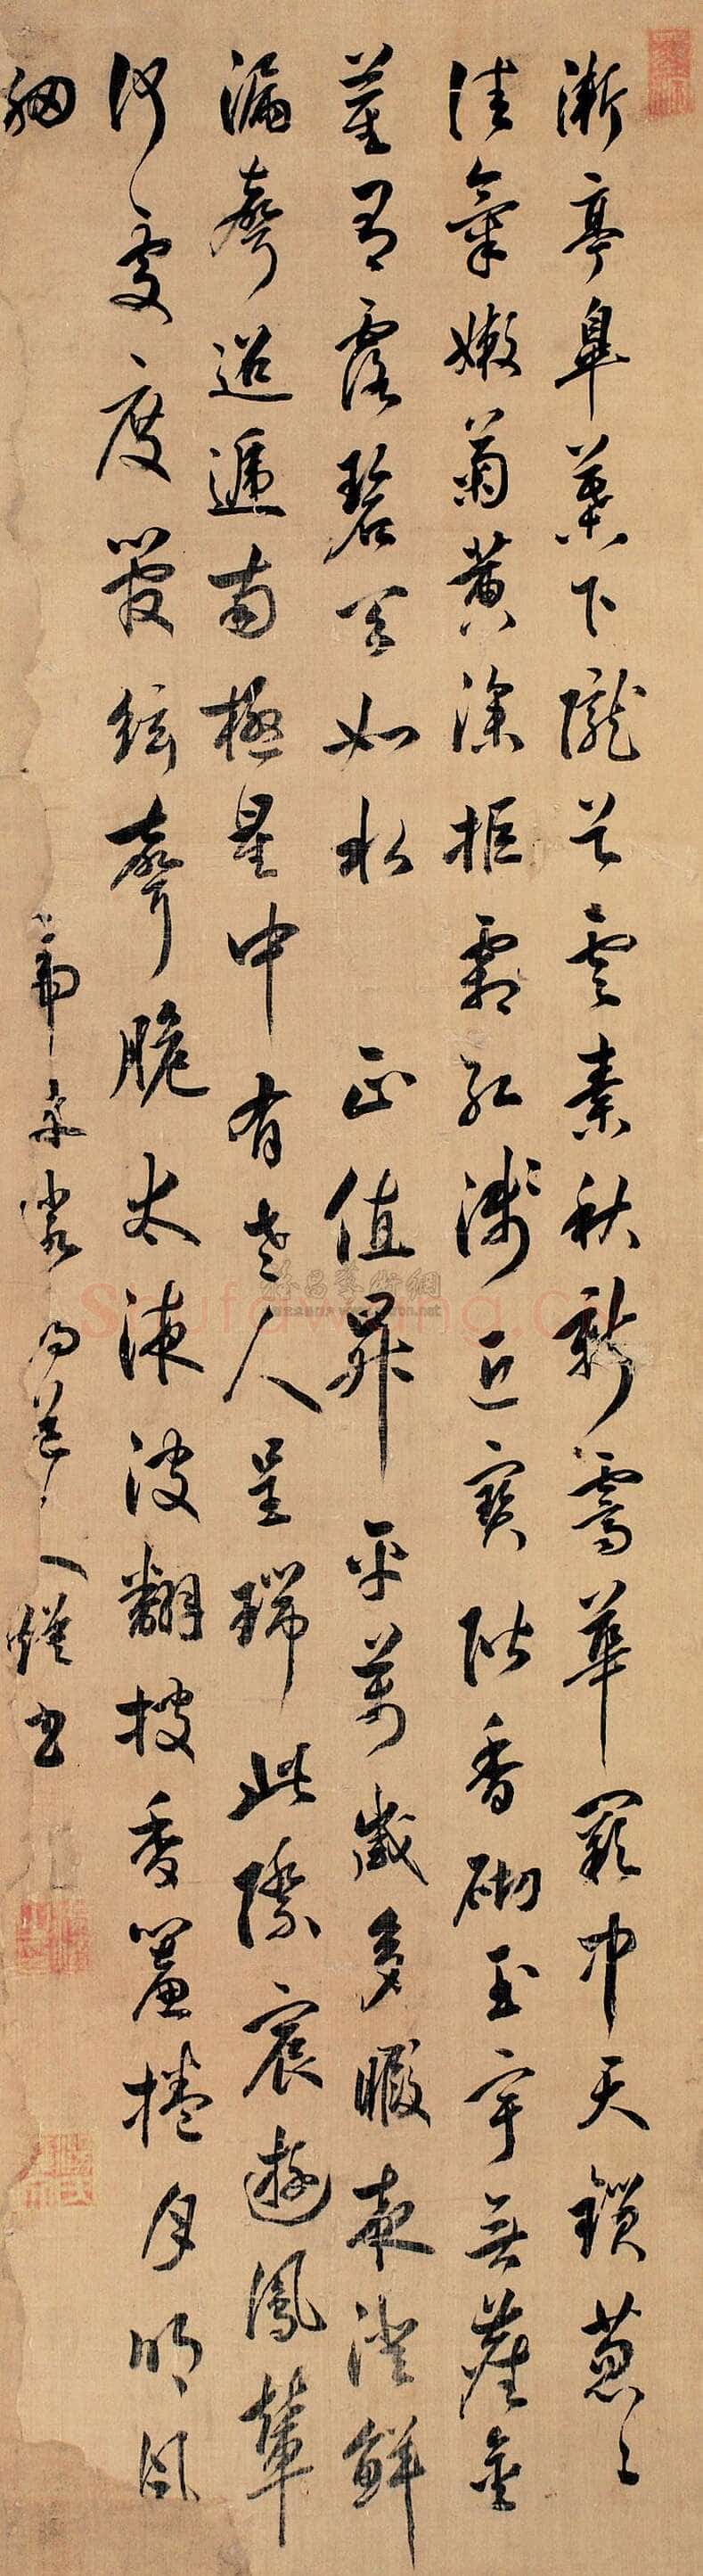 漸亭皐葉下隴首雲素秋新霽華闕中天鎖葱〻
佳氣嫩菊黄深拒霜紅淺近寶階香砌玉宇無塵金
莖有露碧天如水 正值昇平萬歲多暇夜澄鮮
漏聲迢遞南極星中有老人呈瑞此際宸遊鳳輦
何處度管絃聲脆太液波翻披香簾捲月明風
細